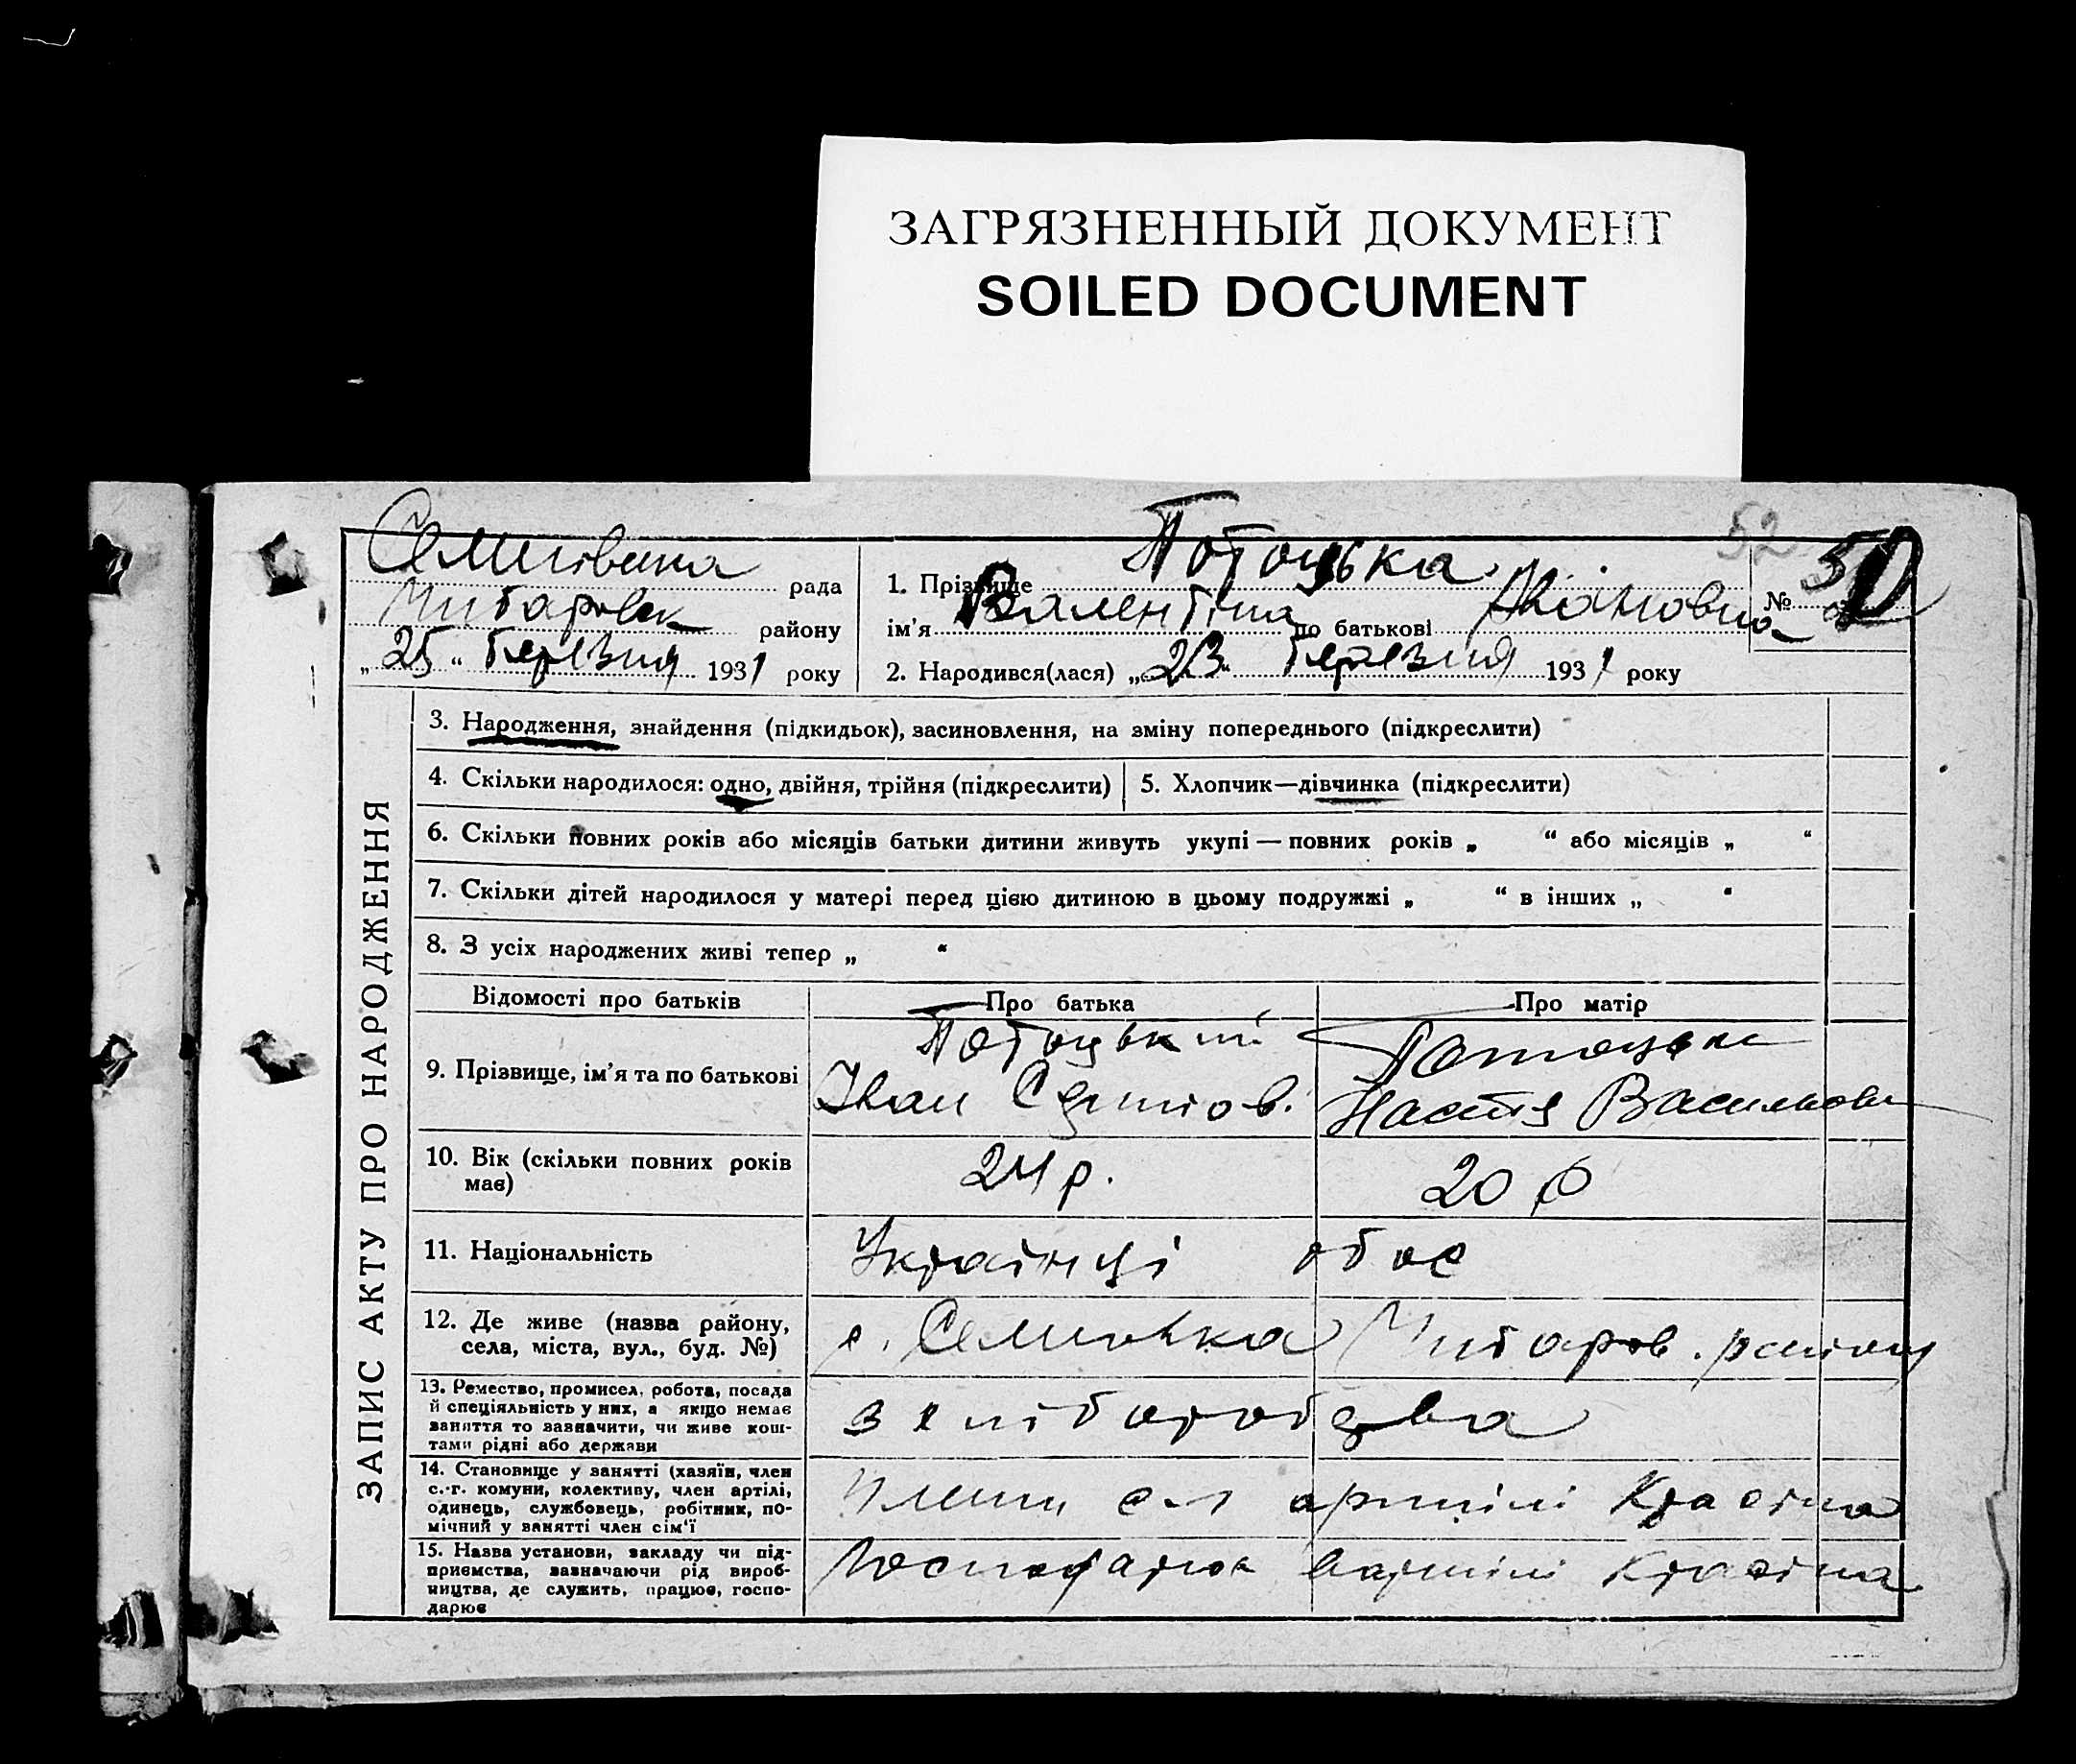 ЗАГРЯЗНЕННЫЙ ДОКУМЕНТ
SOILED DOCUMENT
52
рада
району
„25“ березня 1931 року
1. Прізвище Потоцька
№ 50
ім’я Валентіна по батькові Івановна
2. Народився(лася) „23“ березня 1931 року
ЗАПИС АКТУ ПРО НАРОДЖЕННЯ
3. Народження, знайдення (підкидьок), засиновлення, на зміну попереднього (підкреслити)
4. Скільки народилося: одно, двійня, трійня (підкреслити)
5. Хлопчик—дівчинка (підкреслити)
6. Скільки повних років або місяців батьки дитини живуть укупі — повних років „ “ або місяців „ “
7. Скільки дітей народилося у матері перед цією дитиною в цьому подружжі „ “ в інших „ “
8. З усіх народжених живі тепер „ “
Відомості про батьків
Про батька
Про матір
9. Прізвище, ім’я та по батькові
Потоцький
Іван
Потоцька
Настя Васильовн
10. Вік (скільки повних років
має)
24 р.
20 р
11. Національність
Українці обоє
12. Де живе (назва району,
села, міста, вул., буд. №)
с. Семиовка Читаров. району
13. Ремество, промисел, робота, посада
й спеціяльність у них, а якщо немає
заняття то зазначити, чи живе кош-
тами рідні або держави
з хліборобства
14. Становище у занятті (хазяїн, член
с.-г. комуни, колективу, член артілі,
одинець, службовець, робітник, по-
мічний у занятті член сім’ї
Члени с-г артілі
15. Назва установи, закладу чи під-
приємства, зазначаючи рід вироб-
ництва, де служить, працює, госпо-
дарює
вартілі